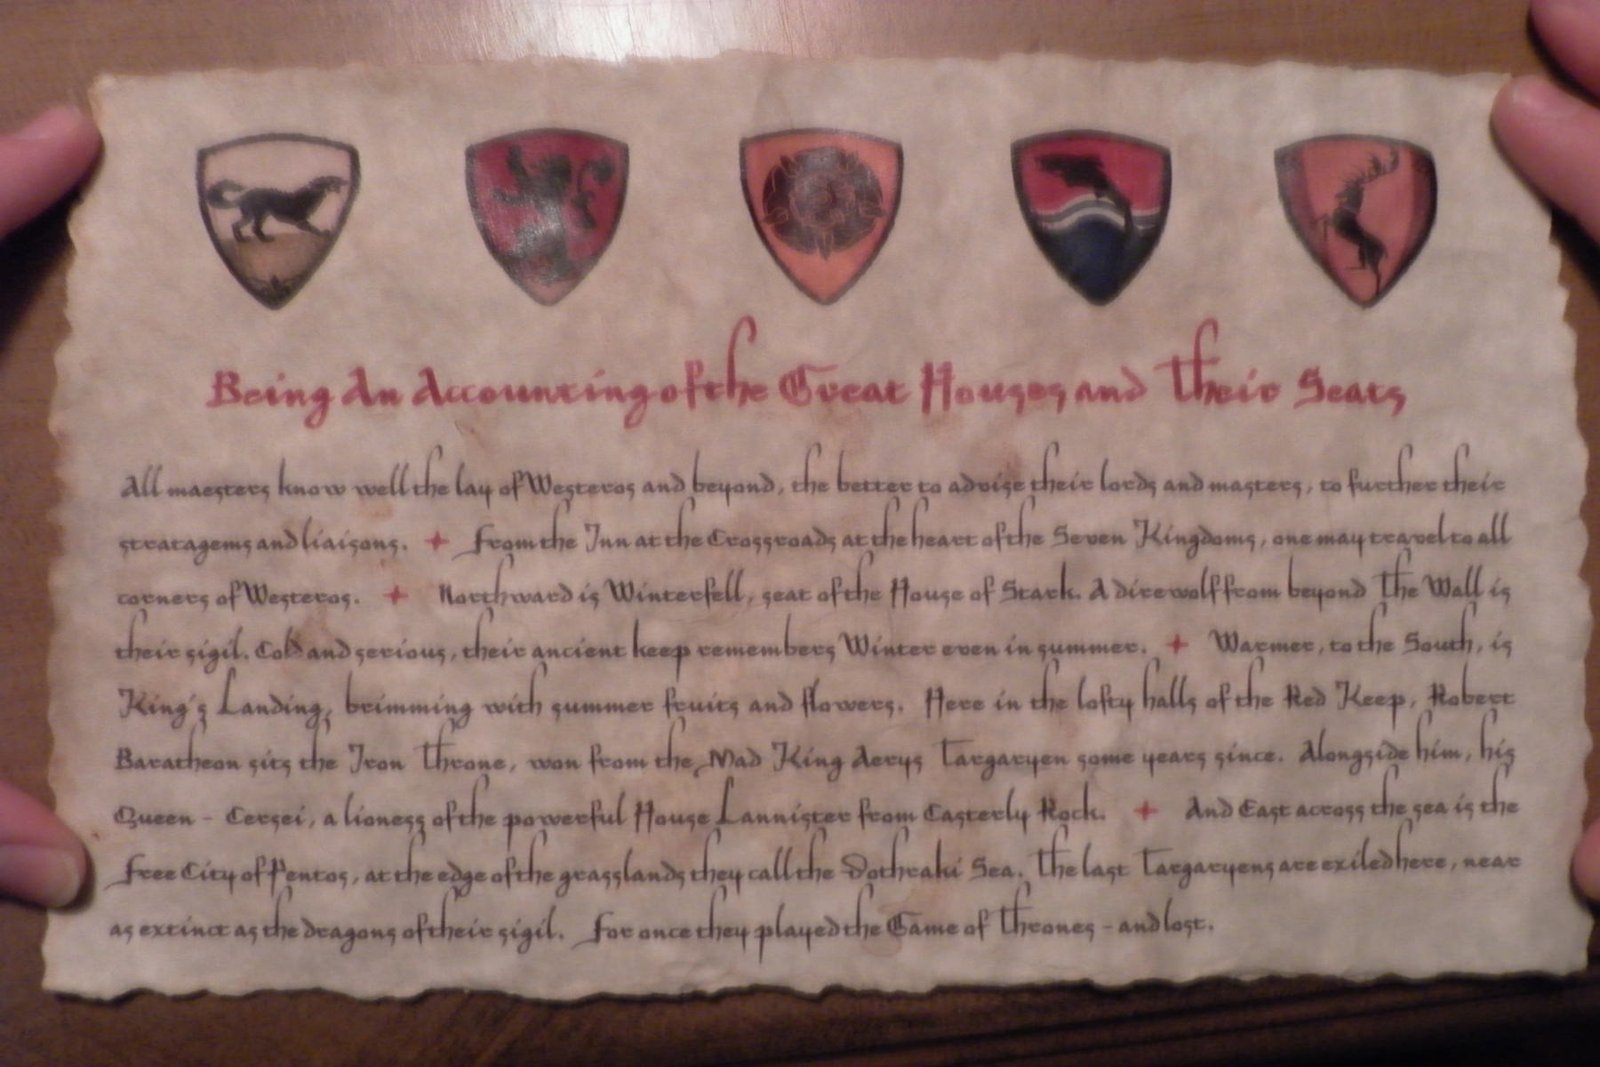 Being An Accounting of the Great Houses and Their Seats
All maesters know well the lay of Westeros and beyond, the better to advise their lords and masters, to further their
stratagems and liaisons. + From the Inn at the Crossroads at the heart of the Seven Kingdoms, one may travel to all
corners of Westeros. + Northward is Winterfell, seat of the House of Stark. A direwolf from beyond The Wall is
their sigil. Cold and serious, their ancient keep remembers Winter even in summer. + Warmer, to the South, is
King's Landing, brimming with summer fruits and flowers. Here in the lofty halls of the Red Keep, Robert
Baratheon sits the Iron Throne, won from the Mad King Aerys Targaryen some years since. Alongside him, his
Queen - Cersei, a lioness of the powerful House Lannister from Casterly Rock. + And East across the sea is the
Free City of Pentos, at the edge of the grasslands they call the Dothraki Sea. The last Targaryens are exiled here, near
as extinct as the dragons of their sigil. For once they played the Game of Thrones - and lost.